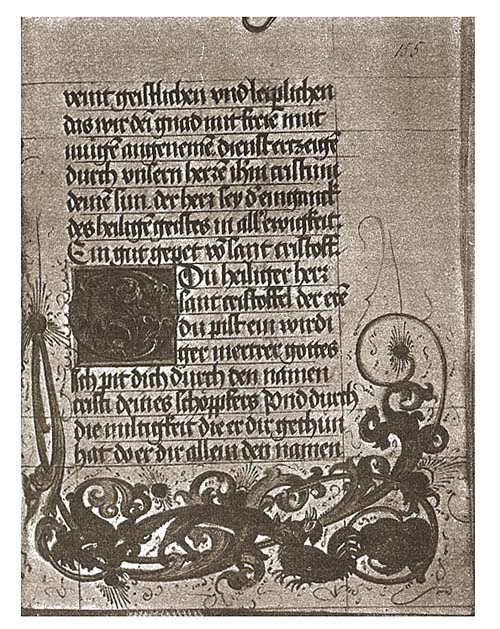 155
veint geistlichen vnd leiplichen
das wir dei gnad mit freie mut
mūgē angeneme dienst ertzeigē
durch vnsern herrē ihm cristum
deinē sun. der herz sey d' einganck
des heiligē geistes in all' ewigkeit.
Ein gut gepet vō sant cristoff.
Du heiliger herz
sant cristoffel der ere
du pist ein wirdi
ger mertrer gottes
Ich pit dich durch den namen
cristi deines schöppfers vnd durch
die miltigkeit die er dir gethun
hat do er dir allein den namen